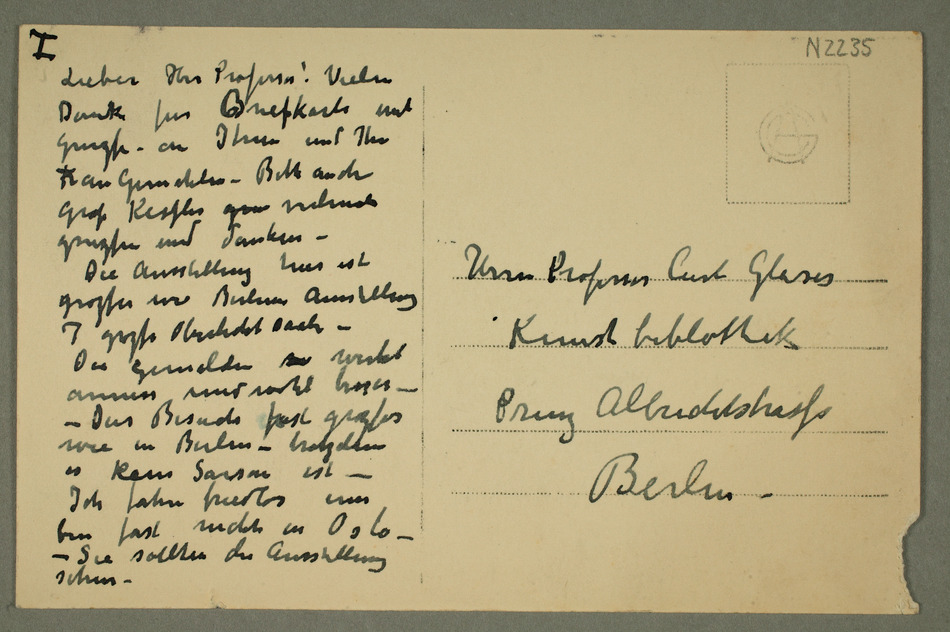 I
N2235
Lieber Herr Professor! Vielen
Dank für Briefkarte und
Grüsse - an Ihnen und Ihre
Frau Gemahlin - Bitte auch
Graf Kessler vielmals
grüssen und danken -
Die Ausstellung hier ist
grosser wie Berliner Ausstellung
7 grosse Oberlicht Saale -
Die Gemälden wirkt
anners und wohl besser -
- Der Besuch fast grosser
wie in Berlin - trotzdem
es kein Saison ist -
Ich fahre friedlos um
bin fast nicht in Oslo -
- Sie sollten die Ausstellung
sehen -
Herrn Professor Curt Glaser
Kunstbibliothek
Prinz Albrechtstrasse
Berlin -